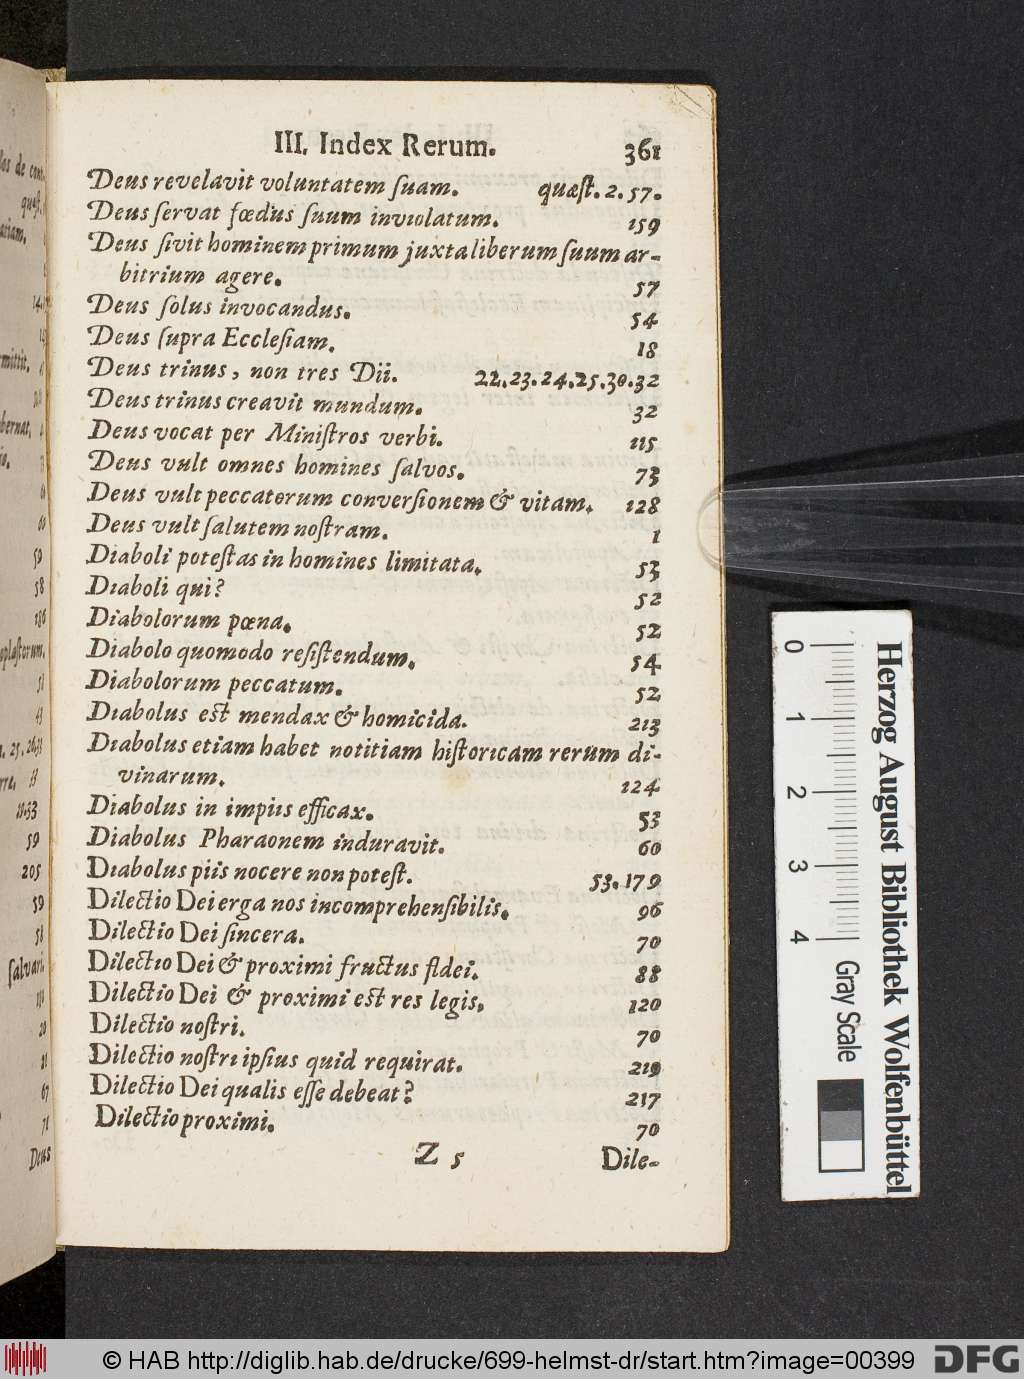 III. Index Rerum. 361
Deus revelavit voluntatem ſuam. quæſt. 2. 57.
Deus ſervat fœdus ſuum inviolatum. 159
Deus ſivit hominem primum juxta liberum ſuum ar-
bitrium agere. 57
Deus ſolus invocandus. 54
Deus ſupra Eccleſiam. 18
Deus trinus, non tres Dii. 22.23.24.25.30.32
Deus trinus creavit mundum. 32
Deus vocat per Miniſtros verbi. 115
Deus vult omnes homines ſalvos. 73
Deus vult peccatorum converſionem & vitam. 128
Deus vult ſalutem noſtram. 1
Diaboli poteſtas in homines limitata. 53
Diaboli qui? 52
Diabolorum pœna. 52
Diabolo quomodo reſiſtendum. 54
Diabolorum peccatum. 52
Diabolus est mendax & homicida. 213
Diabolus etiam habet notitiam hiſtoricam rerum di-
vinarum. 124
Diabolus in impiis efficax. 53
Diabolus Pharaonem induravit. 60
Diabolus piis nocere non poteſt. 53.179
Dilectio Dei erga nos incomprehenſibilis. 96
Dilectio Dei ſincera. 70
Dilectio Dei & proximi fructus fidei. 88
Dilectio Dei & proximi est res legis. 120
Dilectio noſtri. 70
Dilectio noſtri ipſius quid requirat. 219
Dilectio Dei qualis eſſe debeat? 217
Dilectio proximi. 70
Z 5 Dile-
los de con-
quæſt.
mittit.
bernat.
59
58
186
oplaſtorum.
51
59
205
59
58
ſalvari.
67
71
Deus
0 1 2 3 4
Gray Scale
Herzog August Bibliothek Wolfenbüttel
© HAB http://diglib.hab.de/drucke/699-helmst-dr/start.htm?image=00399
DFG